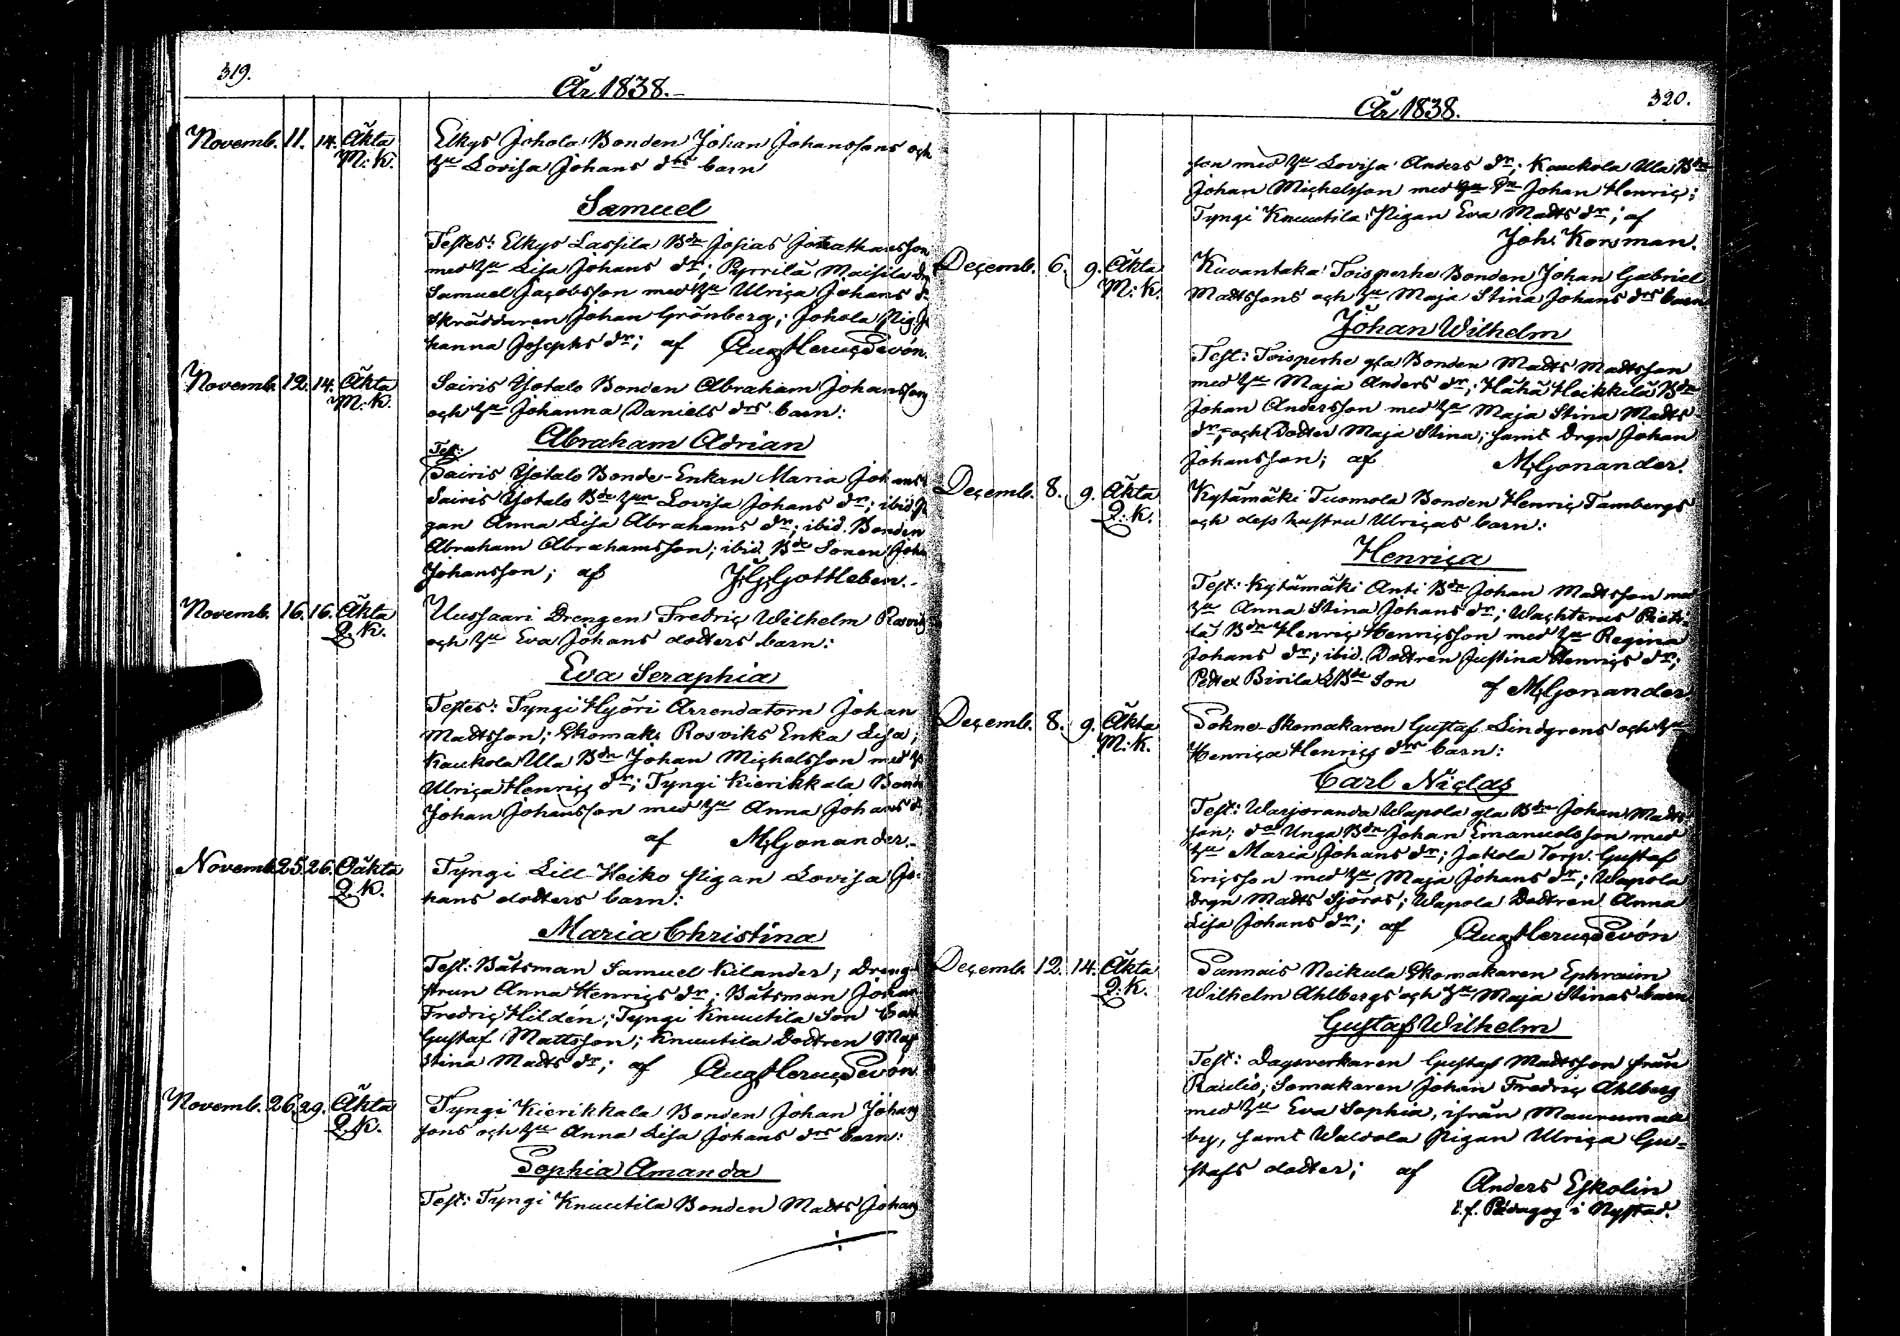 319.
År 1838.
Novemb. 11. 14. Äkta Elkys Johola Bonden Johan Johanssons och
M: K. Hu Lovisa Johans drs barn
Samuel
Testes: Elkys Lassila Bdn Josias Jonathansson
med Hu Lisa Johans dr; Pyrrilä Maisila
Samuel Jacobsson med Hu Ulrica Johans d
Skräddaren Johan Grönberg; Johola Pig Jo
hanna Josephs dr; af Aug Henric Sevón.
Novemb. 12. 14. Äkta Sairis Yotalo Bonden Abraham Johansson
M: K. och Hu Johanna Daniels drs barn:
Abraham Adrian
Test:
Sairis Yotalo Bonde-Enkan Maria Johans
Sairis Yotalo Bde Hun Lovisa Johans dr; ibid. Pi
gan Anna Lisa Abrahams dr; ibid. Bonden
Abraham Abrahamsson; ibid. Bde Sonen Joha
Johansson; af J. G. Gottleben.
Novemb. 16. 16. Äkta Uussaari Drengen Fredric Wilhelm Rosvik
Q. K. och Hu Eva Johans dotters barn:
Eva Seraphia
Testes: Tyngi Hyöri Arrendatorn Johan
Madtsson; Skomak. Rosviks Enka Lisa;
Kaukola Ula Bdn Johan Michelsson med H
Ulrica Henrics dr; Tyngi Kierikkala Bond
Johan Johansson med Hu Anna Johans d
af M. Gonander.
Novemb. 25. 26. Oäkta Tyngi Lill Heiko Pigan Lovisa Jo-
Q. K. hans dotters barn:
Maria Christina
Test: Båtsman Samuel Kilander; Dreng-
strun Anna Henrics dr; Båtsman Johan
Fredric Hildén; Tyngi Knuutila Son
Gustaf Mattsson; Knuutila Dottren Maj
Stina Madts dr; af Aug Henric Sevón
Novemb. 26. 29. Äkta Tyngi Kierikkala Bonden Johan Johans
Q. K. sons och Hu Anna Lisa Johans drs barn:
Sophia Amanda
Test: Tyngi Knuutila Bonden Madts Johans
320.
År 1838.
son med Hu Lovisa Anders dr; Kaukola Ula Bdn
Johan Michelsson med Dn Johan Henric;
Tyngi Knuutila Pigan Eva Madts dr; af
Joh. Korsman.
Decemb. 6. 9. Äkta Kuvantaka Toisperhe Bonden Johan Gabriel
M: K. Madtssons och Hu Maja Stina Johans drs barn
Johan Wilhelm
Test: Toisperhe gla Bonden Madts Madtsson
med Hu Maja Anders dr; Hähä Heikkilä Bdn
Johan Andersson med Hu Maja Stina Madts
dr; och Dotter Maja Stina; samt drgn Johan
Johansson; af M. Gonander.
Decemb. 8. 9. Äkta Kytämäki Tuomola Bonden Henric Tambergs
Q: K. och dess hustru Ulricas barn:
Henrica
Test: Kytämäki Anti Bdn Johan Madtsson med
Hu Anna Stina Johans dr; Wachterus Pieti-
lä Bdn Henric Henricsson med Hu Regina
Johans dr; ibid. Dottren Justina Henrics dr;
Petter Birila Bde Son af M. Gonander
Decemb. 8. 9. Äkta Sokne-Skomakaren Gustaf Lindgrens och Hu
M: K. Henrica Henrics drs barn:
Carl Niclas
Test: Warjoranda Wapola gla Bdn Johan Madts-
son; do Unga Bdn Johan Emanuelsson med
Hu Maria Johans dr; Jakola Torp. Gustaf
Ericsson med Hu Maja Johans dr; Wapola
Drgn Madts Sjöros; Wapola Dottren Anna
Lisa Johans dr; af Aug Henric Sevón
Decemb. 12. 14. Äkta Sannais Neikula Skomakaren Ephraim
Q: K. Wilhelm Ahlbergs och Hu Maja Stinas barn
Gustaf Wilhelm
Test: Dagsverkaren Gustaf Madtsson från
Raulio; Somakaren Johan Fredric Ahlberg
med Hu Eva Sophia, ifrån Mauramaa
by, samt Waldola Pigan Ulrica Gu-
stafs dotter; af Anders Eskolin
t. f. Pædagog i Nystad.